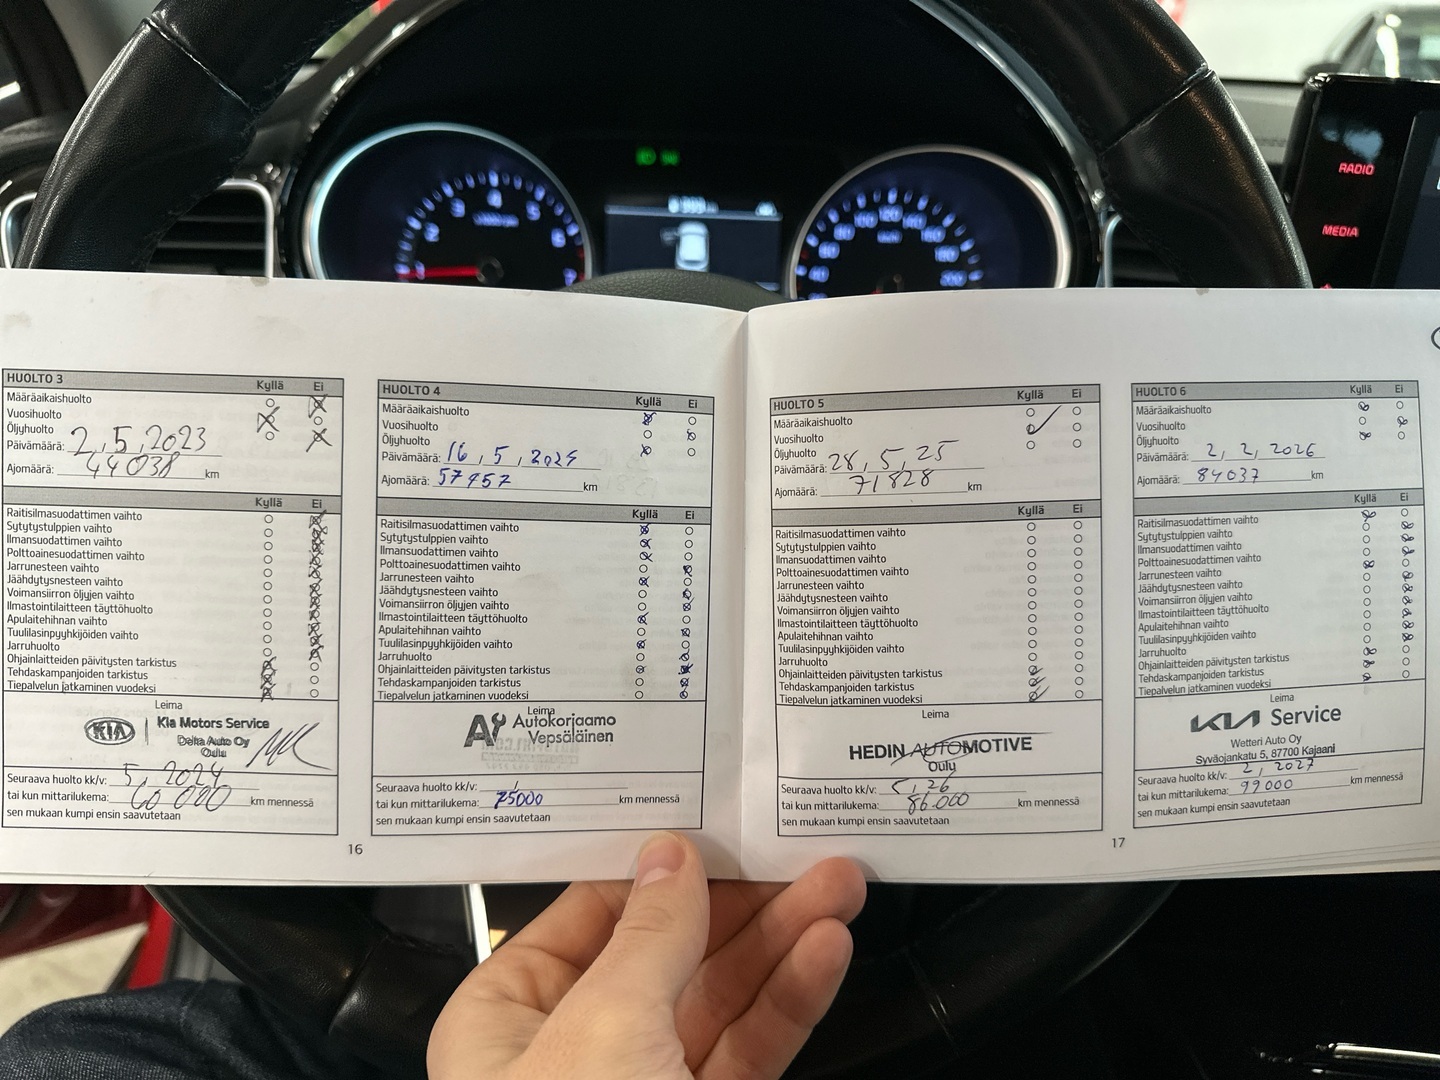 RADIO
MEDIA
HUOLTO 3
Kyllä Ei
Määräaikaishuolto
Vuosihuolto
Öljyhuolto
Päivämäärä: 2, 5, 2023
Ajomäärä: 44 038 km
Kyllä Ei
Raitisilmasuodattimen vaihto
Sytytystulppien vaihto
Ilmansuodattimen vaihto
Polttoainesuodattimen vaihto
Jarrunesteen vaihto
Jäähdytysnesteen vaihto
Voimansiirron öljyjen vaihto
Ilmastointilaitteen täyttöhuolto
Apulaitehihnan vaihto
Tuulilasinpyyhkijöiden vaihto
Jarruhuolto
Ohjainlaitteiden päivitysten tarkistus
Tehdaskampanjoiden tarkastus
Tiepalvelun jatkaminen vuodeksi
Leima
KIA Kia Motors Service
Delta Auto Oy
Oulu
Seuraava huolto kk/v: 5, 2024
tai kun mittarilukema: 60 000 km mennessä
sen mukaan kumpi ensin saavutetaan
16
HUOLTO 4
Kyllä Ei
Määräaikaishuolto
Vuosihuolto
Öljyhuolto
Päivämäärä: 16, 5, 2024
Ajomäärä: 57957 km
Kyllä Ei
Raitisilmasuodattimen vaihto
Sytytystulppien vaihto
Ilmansuodattimen vaihto
Polttoainesuodattimen vaihto
Jarrunesteen vaihto
Jäähdytysnesteen vaihto
Voimansiirron öljyjen vaihto
Ilmastointilaitteen täyttöhuolto
Apulaitehihnan vaihto
Tuulilasinpyyhkijöiden vaihto
Jarruhuolto
Ohjainlaitteiden päivitysten tarkistus
Tehdaskampanjoiden tarkastus
Tiepalvelun jatkaminen vuodeksi
Leima
Autokorjaamo
Vepsäläinen
Seuraava huolto kk/v: /
tai kun mittarilukema: 75000 km mennessä
sen mukaan kumpi ensin saavutetaan
HUOLTO 5
Kyllä Ei
Määräaikaishuolto
Vuosihuolto
Öljyhuolto
Päivämäärä: 28, 5, 25
Ajomäärä: 71828 km
Kyllä Ei
Raitisilmasuodattimen vaihto
Sytytystulppien vaihto
Ilmansuodattimen vaihto
Polttoainesuodattimen vaihto
Jarrunesteen vaihto
Jäähdytysnesteen vaihto
Voimansiirron öljyjen vaihto
Ilmastointilaitteen täyttöhuolto
Apulaitehihnan vaihto
Tuulilasinpyyhkijöiden vaihto
Jarruhuolto
Ohjainlaitteiden päivitysten tarkistus
Tehdaskampanjoiden tarkastus
Tiepalvelun jatkaminen vuodeksi
Leima
HEDIN AUTOMOTIVE
Oulu
Seuraava huolto kk/v: 5, 26
tai kun mittarilukema: 86.000 km mennessä
sen mukaan kumpi ensin saavutetaan
17
HUOLTO 6
Kyllä Ei
Määräaikaishuolto
Vuosihuolto
Öljyhuolto
Päivämäärä: 2, 2, 2026
Ajomäärä: 84037 km
Kyllä Ei
Raitisilmasuodattimen vaihto
Sytytystulppien vaihto
Ilmansuodattimen vaihto
Polttoainesuodattimen vaihto
Jarrunesteen vaihto
Jäähdytysnesteen vaihto
Voimansiirron öljyjen vaihto
Ilmastointilaitteen täyttöhuolto
Apulaitehihnan vaihto
Tuulilasinpyyhkijöiden vaihto
Jarruhuolto
Ohjainlaitteiden päivitysten tarkistus
Tehdaskampanjoiden tarkastus
Tiepalvelun jatkaminen vuodeksi
Leima
KIA Service
Wetteri Auto Oy
Syväojankatu 5, 87700 Kajaani
Seuraava huolto kk/v: 2, 2027
tai kun mittarilukema: 99000 km mennessä
sen mukaan kumpi ensin saavutetaan